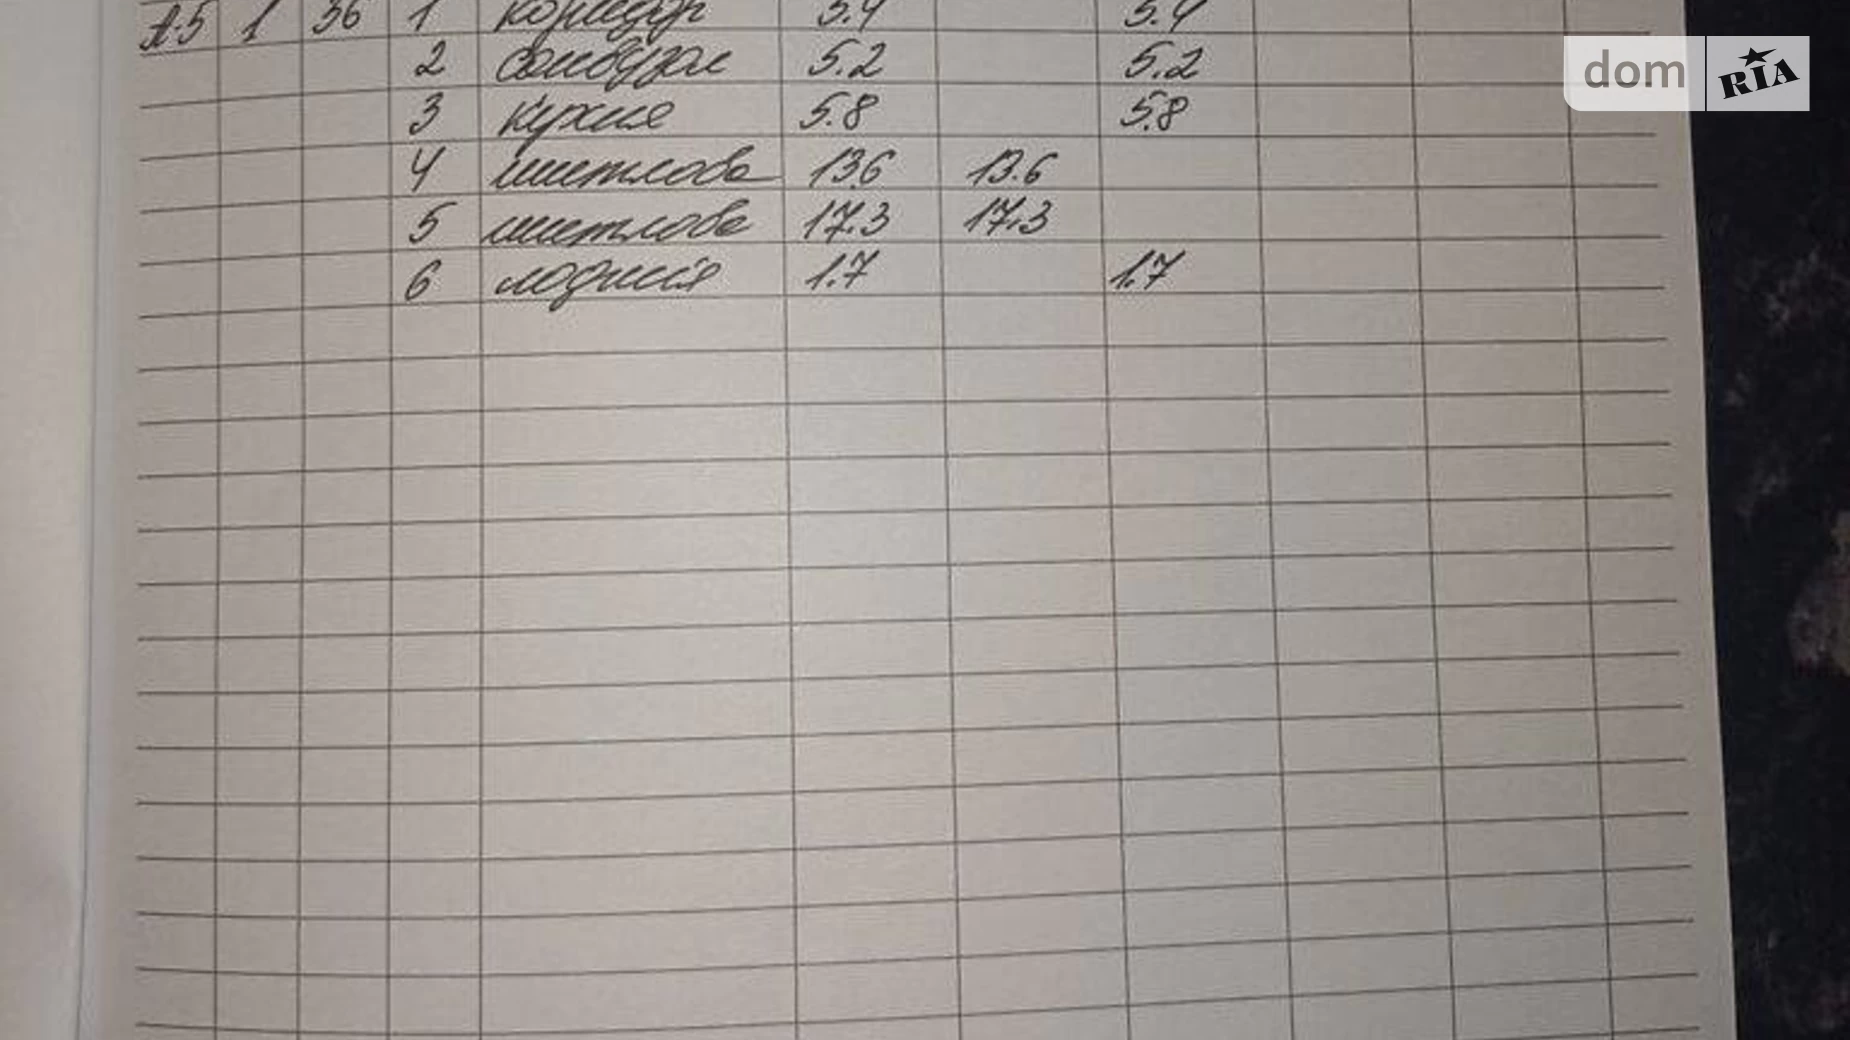 А-5 1 36 1 коридор 5.4 5.4
2 санвузол 5.2 5.2
3 кухня 5.8 5.8
4 житлова 13.6 13.6
5 житлова 17.3 17.3
6 лоджія 1.7 1.7
dom RIA